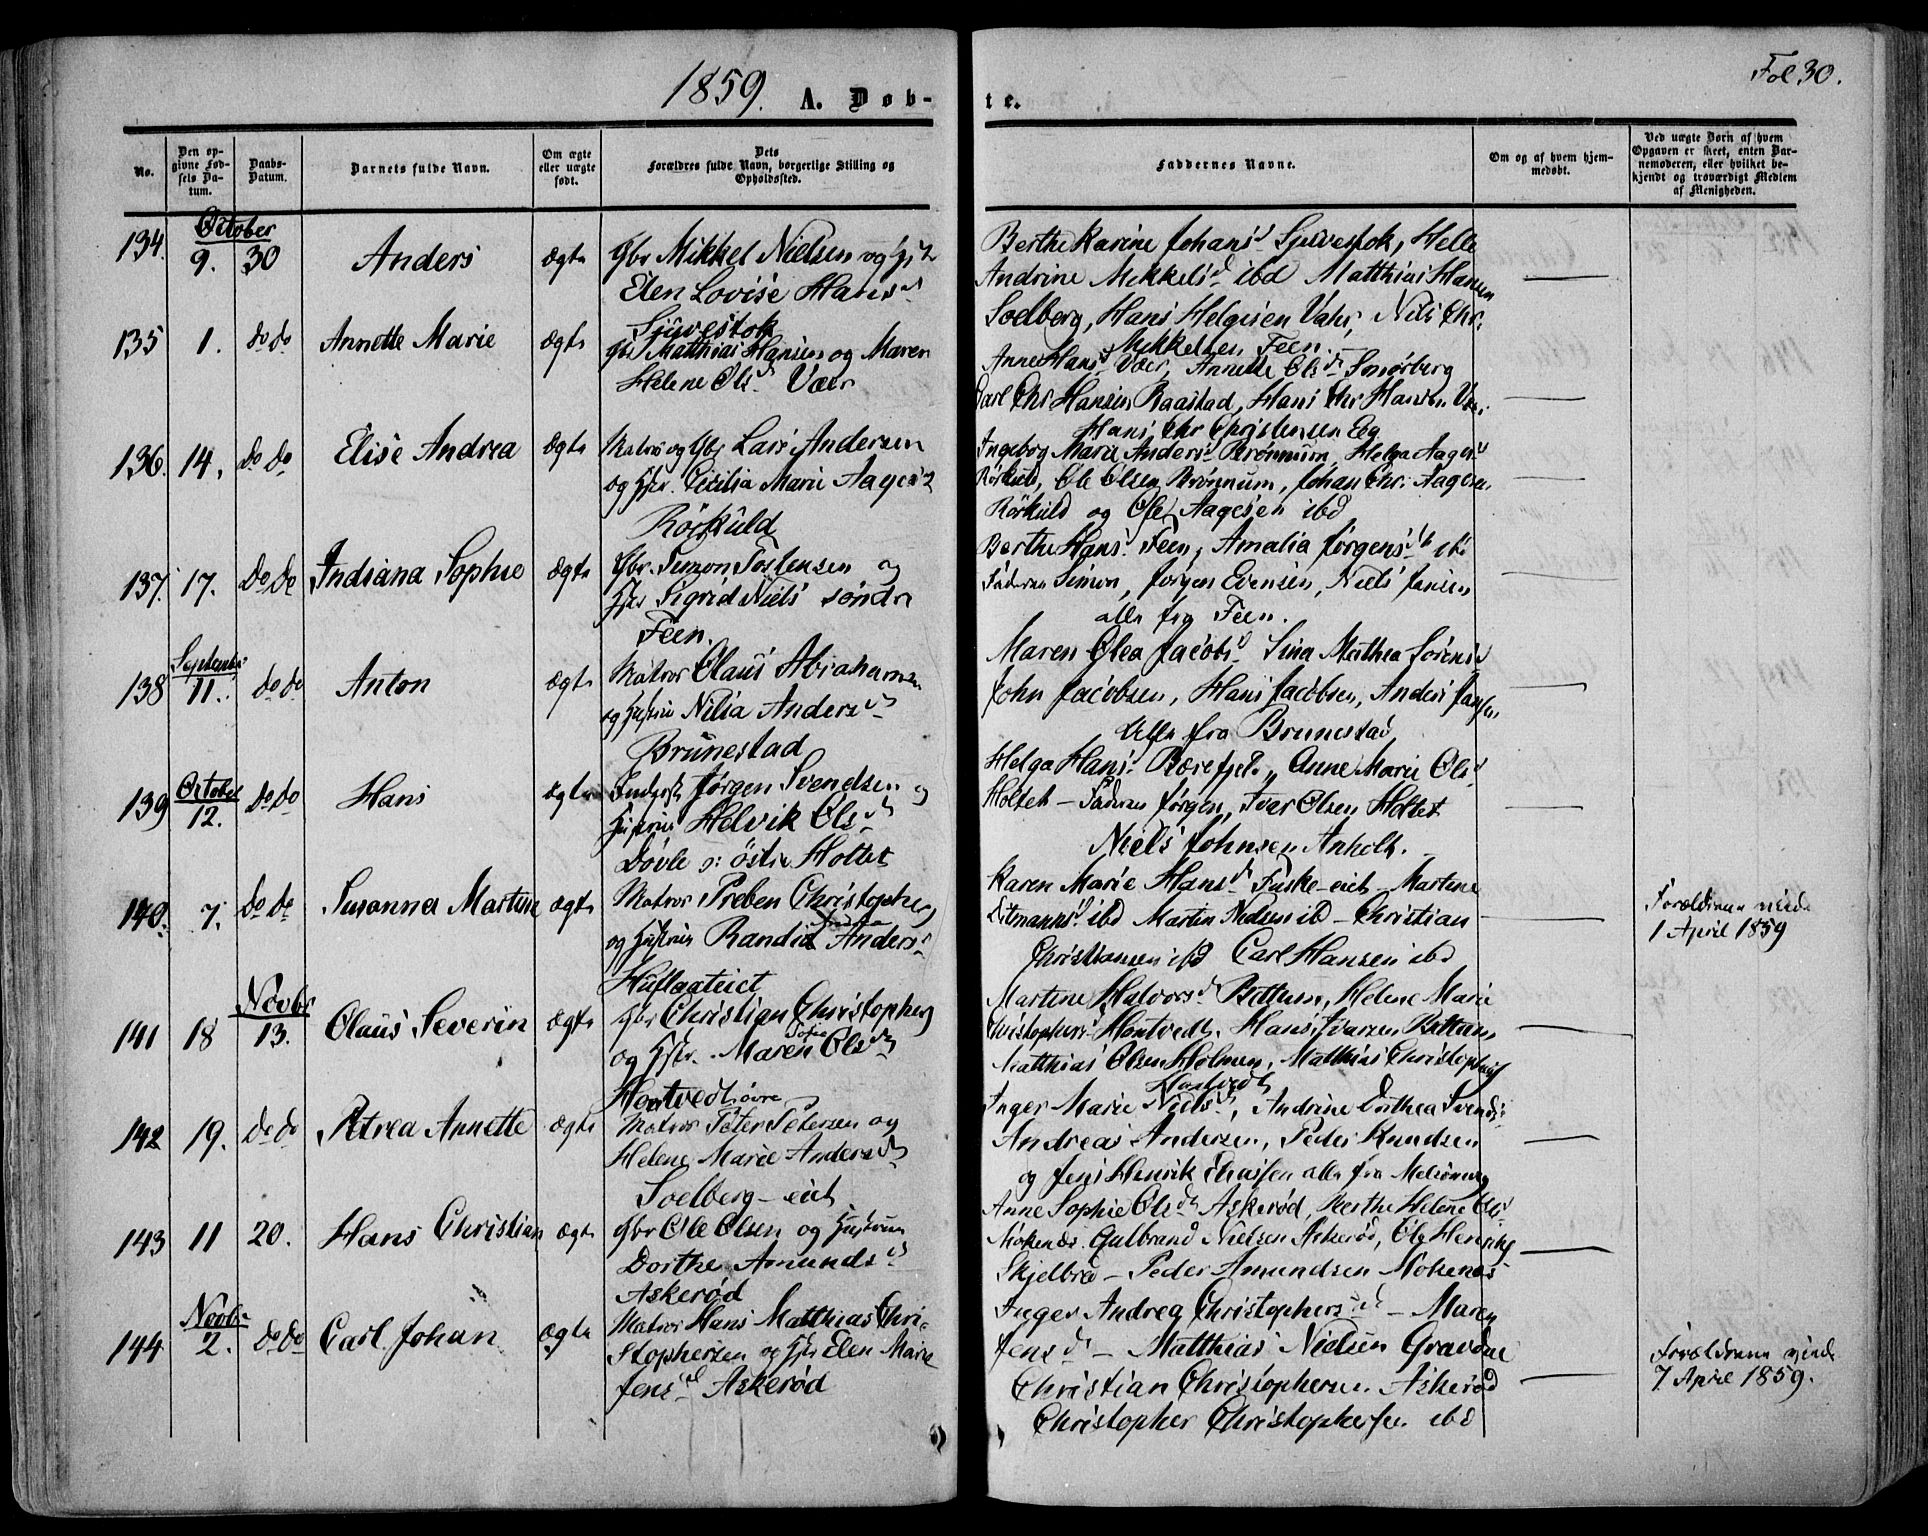 1859. A. Døb-
te.
Fol 30.
No. | Den opgivne Fødsels Datum. | Daabs-Datum. | Barnets fulde Navn. | Om ægte eller uægte født. | Dets Forældres fulde Navn, borgerlige Stilling og Opholdssted. | Faddernes Navne. | Om og af hvem hjemmedøbt. | Ved uægte Børn af hvem Opgaven er skeet, enten Barnemoderen, eller hvilket bekjendt og troværdigt Medlem af Menigheden.
134 October 9. 30 Anders ægte Gbr Mikkel Nielsen og
Elen Lovise Hansd
Sjuestok
Berthe Karine Johansd Sjuestok, Helle
Andrine Mikkelsd ibd Matthias Hansen
Soelberg, Hans Helgesen Vahr, Niels Chr.
Mikkelsen Feen
135 1. do do Annette Marie ægte Gbr Matthias Hansen og Maren
Helene Olsd Vær
Anne Hansd Vær, Annette Olsd Smørberg
Carl Chr Hansen Raastad, Hans Chr Hansen Vær
Hans Chr Christensen Eeg
136. 14. do do Elise Andrea ægte Matros og Gbr Lars Andersen
og Hstr. Cecilia Marie Aagesd
Rørkuld
Ingeborg Marie Andersd Brønnum, Helga Aagesd
Rørkuld, Ole Olsen Brønnum, Johan Chr. Aagesen
Rørkuld og Ole Aagesen ibd
137. 17. do do Indiana Sophie ægte Gbr. Simon Tostensen og
Hstr Sigrid Niels søndre
Feen.
Berthe Hansd Feen, Amalia Jørgensd ibd
Faderen Simon, Jørgen Evensen, Niels Jansen
alle fra Feen.
138 September 11. do do Anton ægte Matros Claus Abrahamsen
og Hustru Nilia Andersd
Brunestad
Maren Olea Jacobsd Sina Mathea Sørensd
John Jacobsen, Hans Jacobsen, Anders Jansen
Alle fra Brunestad
139 October 12. do do Hans ægte Jørgen Svendsen og
Hustru Helvik Olsd
Døvle o: østre Holtet
Helga Hansd Bærefjel, Anne Marie Olsd
Holtet – Faderen Jørgen, Ivar Olsen Holtet
Niels Johnsen Anholt.
140. 7. do do Susanna Martine ægte Matros Preben Christophers
og Hustru Randia Andersd
Karen Marie Hansd Martine
Ditmannsd ibd Martin Nielsen ibd – Christian
Christiansen ibd Carl Hansen ibd
Forældrene viede
1 April 1859
141 18 Novbr 13. Olaus Severin ægte Gbr Christian Christophers
og Hstr. Maren Sofie Olsd
Hontvedt øvre
Martine Halvorsd Bettum, Helene Marie
Christophersd Hontvedt, Hans Ivarsen Bettum,
Matthias Olsen Holmen, Matthias Christophers
Hontvedt
142 19. do do Petrea Annette ægte Matros Peter Petersen og
Helene Marie Andersd
Soelberg-eiet
Inger Marie Nielsd, Andrine Dorthea Svendsd
Andreas Andersen, Peder Knudsen
og Jens Henrik Eliassen alle fra Melsomvig
143 11 20. Hans Christian ægte Gbr Ole Olsen og Hustrue
Dorthe Amundsd
Askerød
Anne Sophie Olsd Askerød, Berthe Helene Olsd
Mokenæs. Gulbrand Nielsen Askerød, Ole Henriks
Skjelbred – Peder Amundsen Mokenæs
144 Novbr 2. do do Carl Johan ægte Matros Hans Matthias Chri-
stophersen og Hstr Elen Marie
Jensd Askerød
Inger Andrea Christophersd – Maren
Jensd – Matthias Nielsen Gravdal
Christian Christophersen Askerød
Christopher Christophersen ibd
Forældrene viede
7 April 1859.